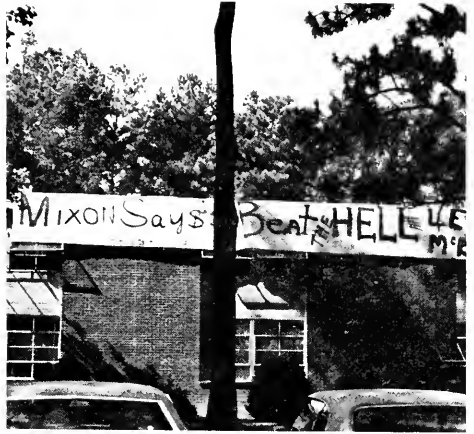 MIXON Says Beat the HELL